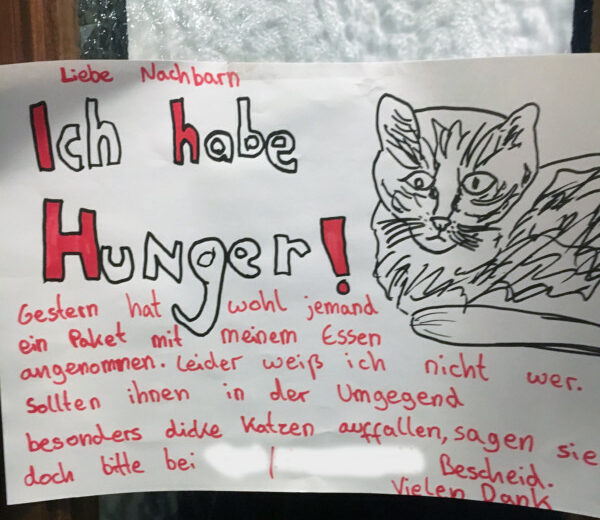 Liebe Nachbarn
Ich habe
Hunger!
Gestern hat wohl jemand
ein Paket mit meinem Essen
angenommen. Leider weiß ich nicht wer.
Sollten ihnen in der Umgegend
besonders dicke Katzen auffallen, sagen sie
doch bitte bei / Bescheid.
Vielen Dank